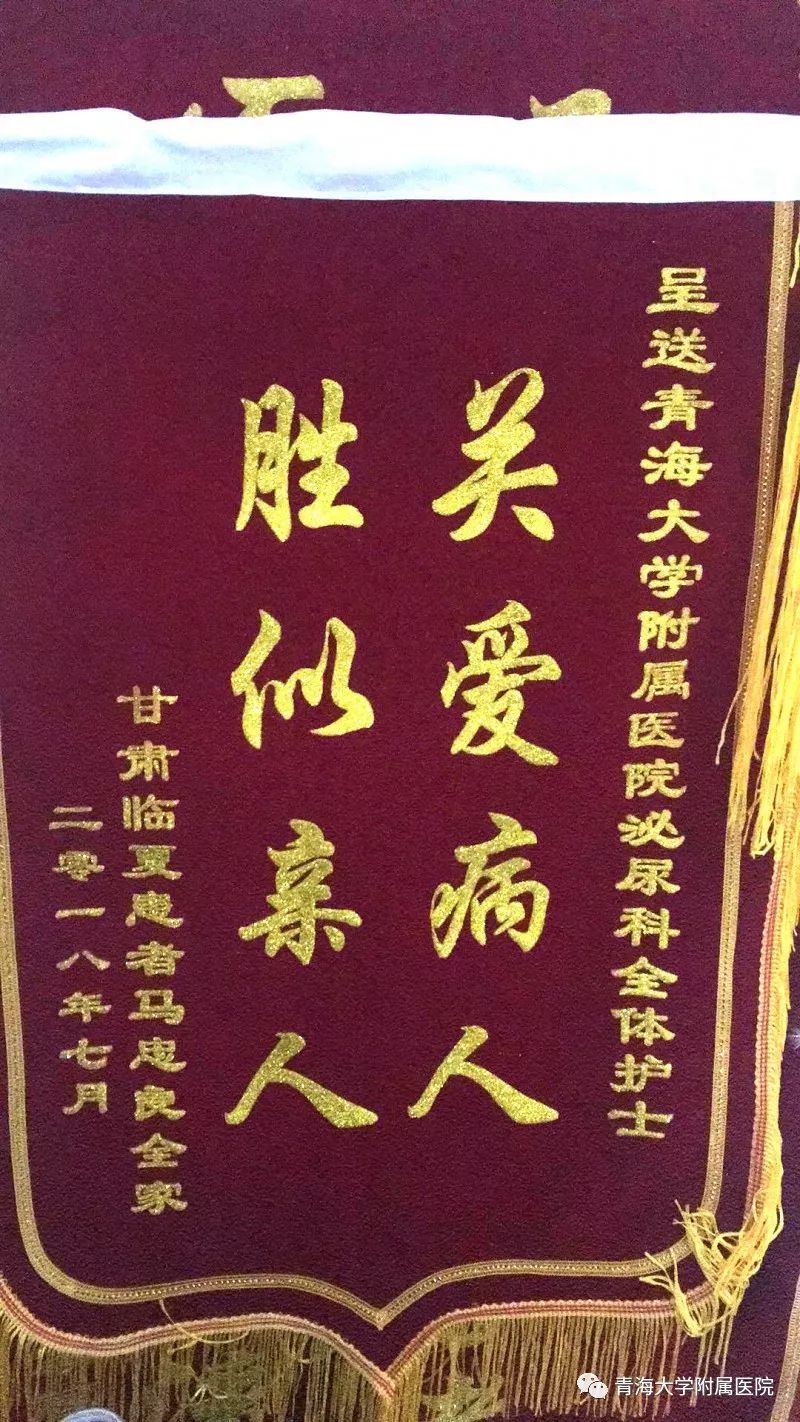 呈送青海大学附属医院泌尿科全体护士
关爱病人
胜似亲人
甘肃临夏患者马忠良全家
二零一八年七月
青海大学附属医院